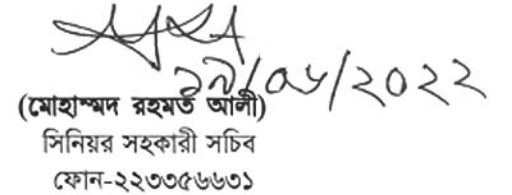 ১৯/০৬/২০২২
(মোহাম্মদ রহমত আলী)
সিনিয়র সহকারী সচিব
ফোন-২২৩৩৫৬৬৩১